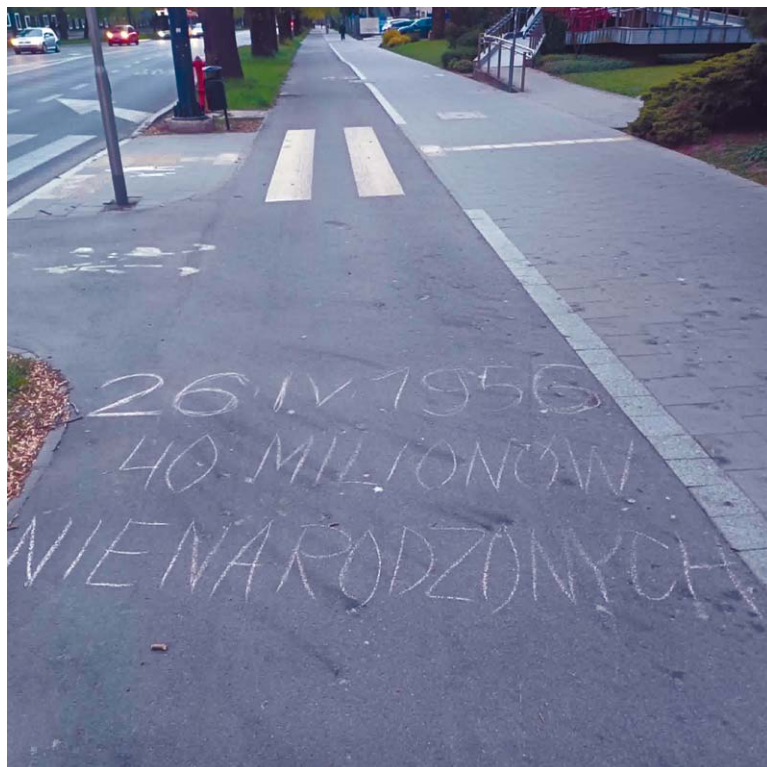 26 IV 1956
40 MILIONÓW
NIENARODZONYCH